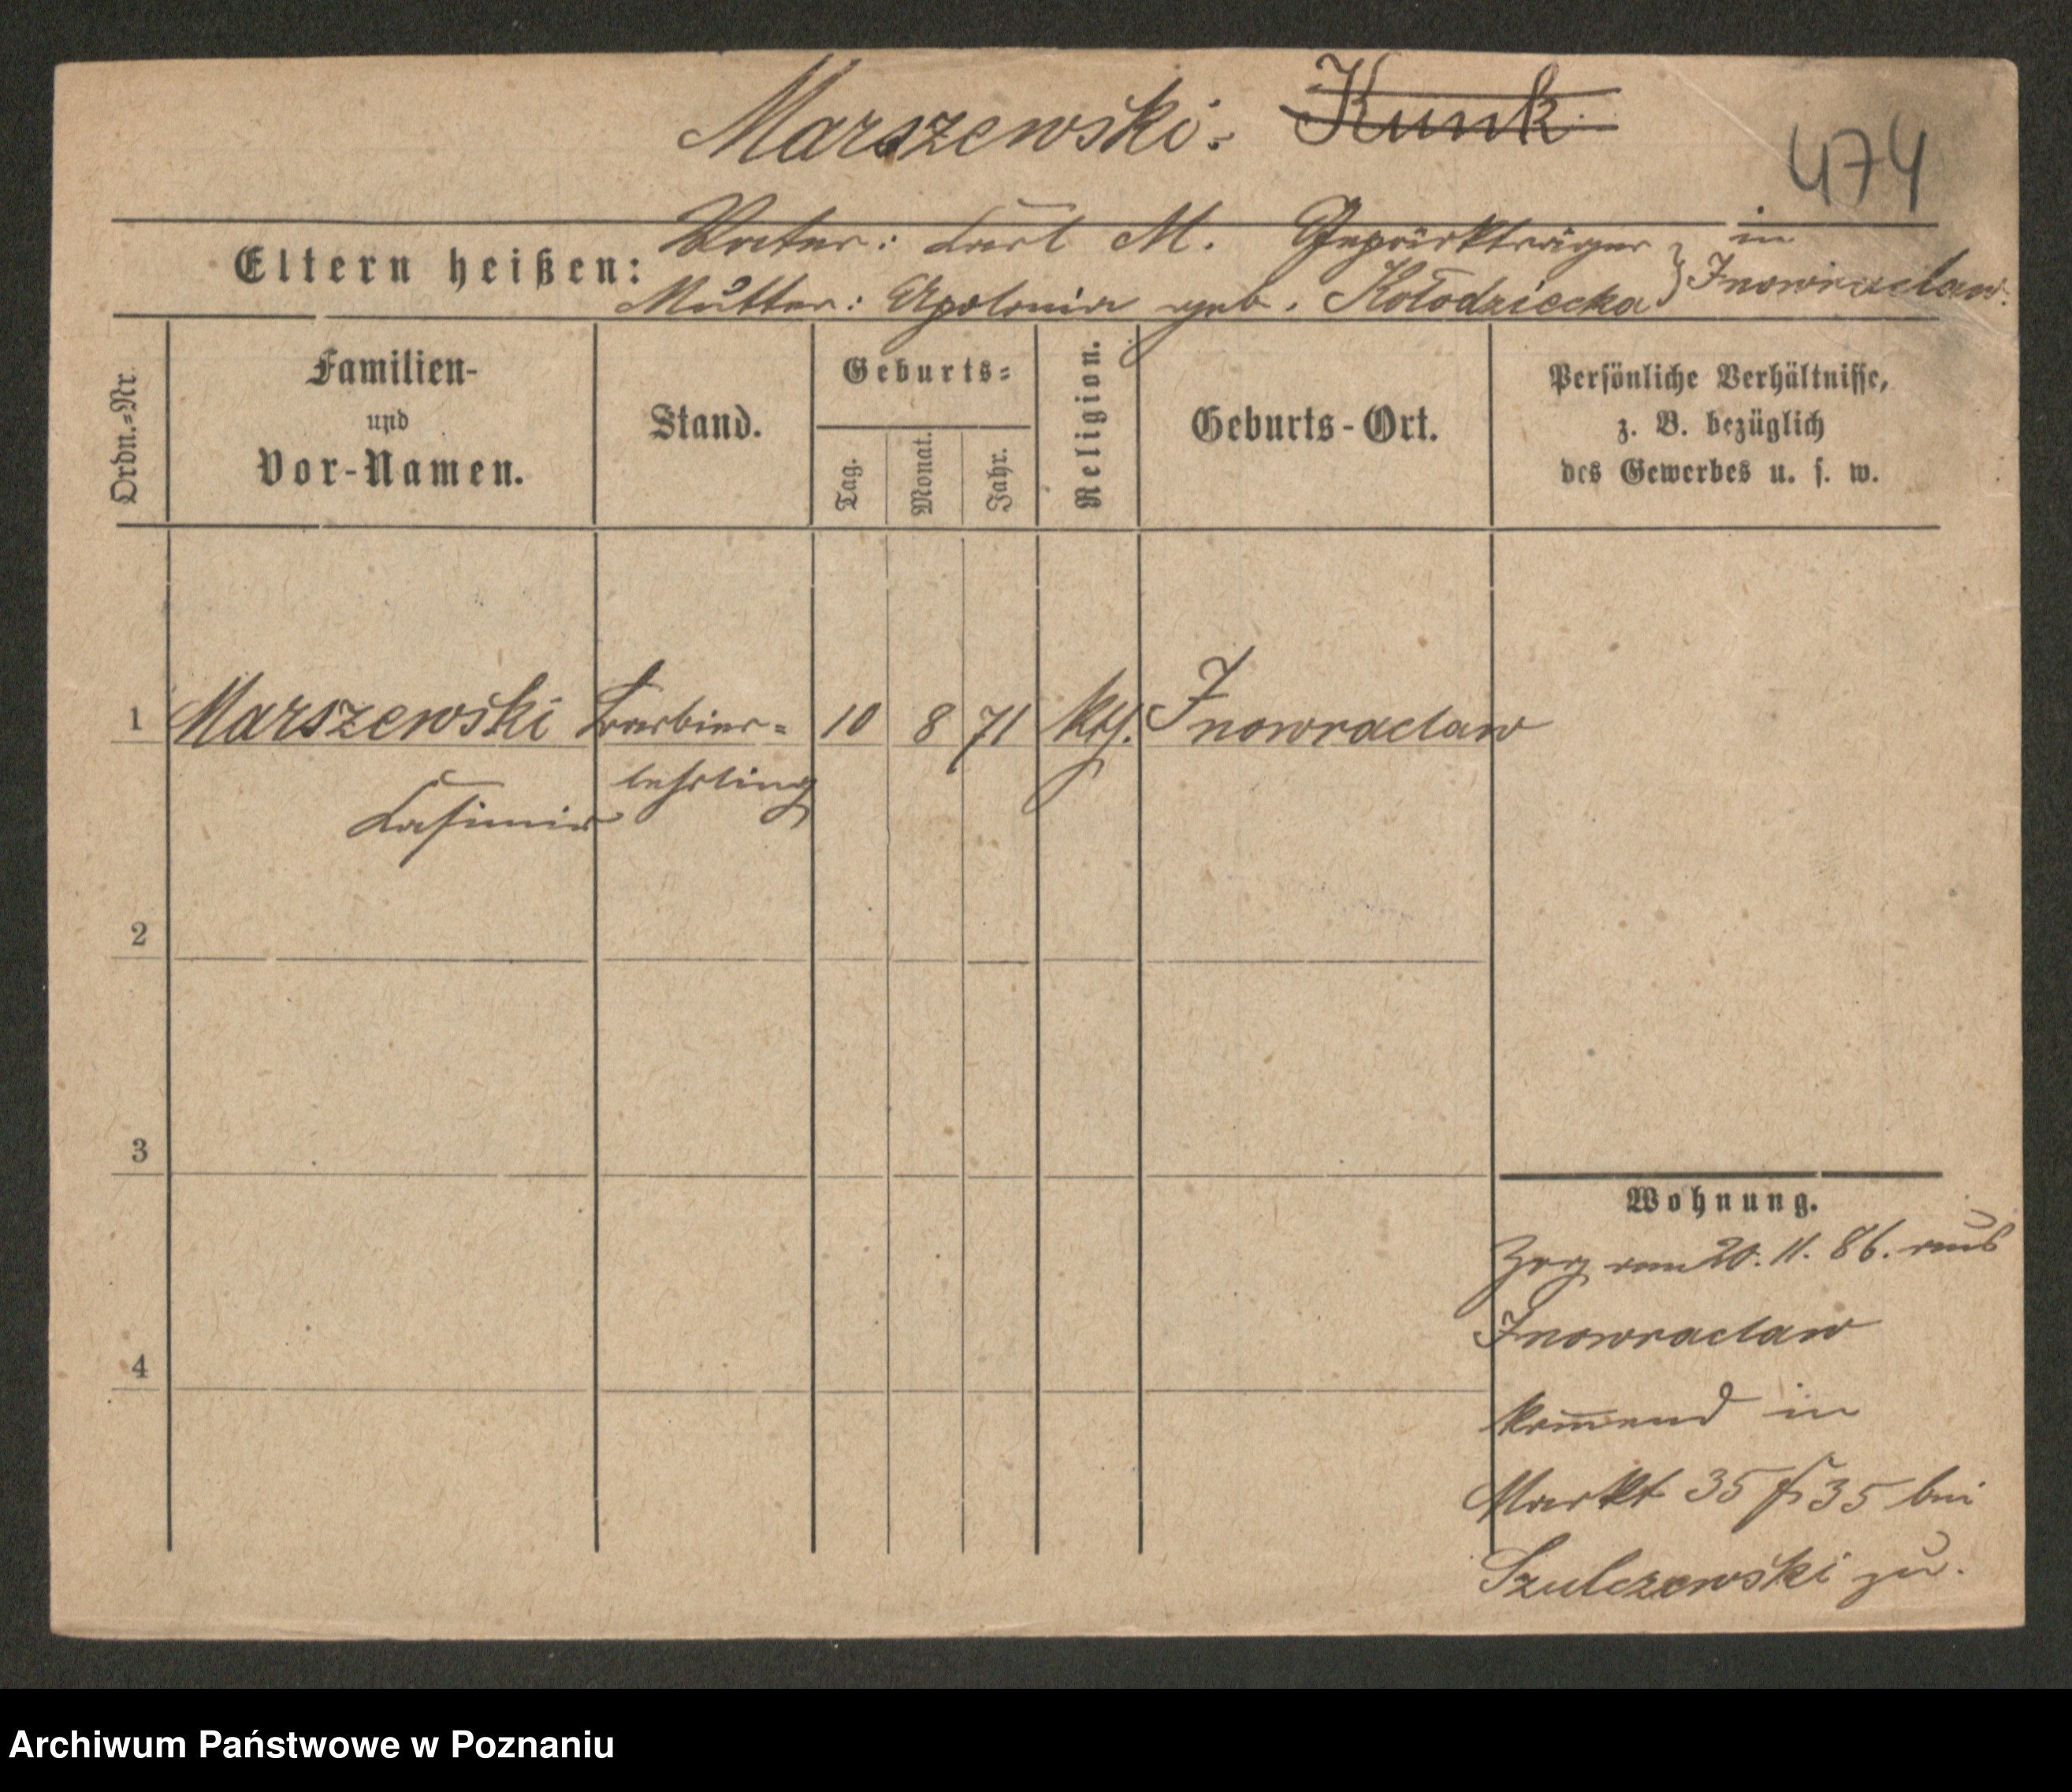 Marszewski. Kunk
474
Vater: Carl M. Gepäckträger in
Eltern heißen:
Mutter: Apolonia geb. Kołodziecka } Inowraclaw.
Ordn.-Nr.
Familien-
und
Vor-Namen.
Stand.
Geburts-
Tag.
Monat.
Jahr.
Religion.
Geburts-Ort.
Persönliche Verhältnisse,
z. B. bezüglich
des Gewerbes u. s. w.
1 Marszewski Barbier- 10 8 71 kth. Inowraclaw
lehrling
Casimir
2
3
4
Wohnung.
Zog am 20. 11. 86. aus
Inowraclaw
komend in
Markt 35 35 bei
Szulczewski zu.
Archiwum Państwowe w Poznaniu